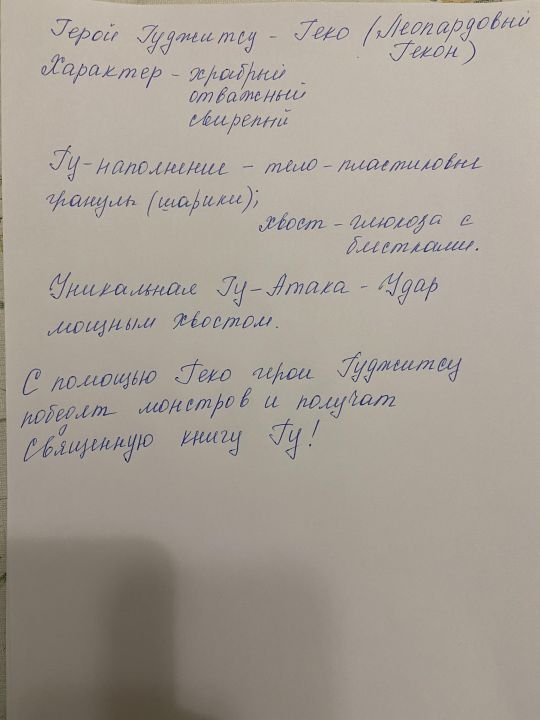 Герой Гуджитсу - Геко (Леопардовый
Гекон)
Характер - храбрый
отважный
свирепый
Гу-наполнение - тело - пластиковые
гранулы (шарики);
хвост - глюкоза с
блестками.
Уникальная Гу-Атака - Удар
мощным хвостом.
С помощью Геко герои Гуджитсу
победят монстров и получат
Священную книгу Гу!